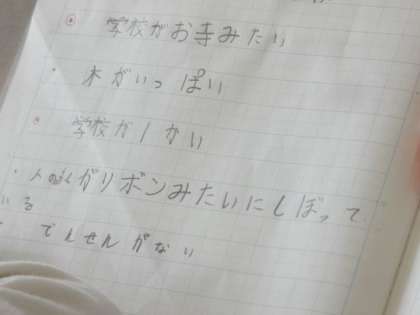 学校がお寺みたい
木がいっぱい
学校が1かい
がリボンみたいにしばって
いる
でんせんがない